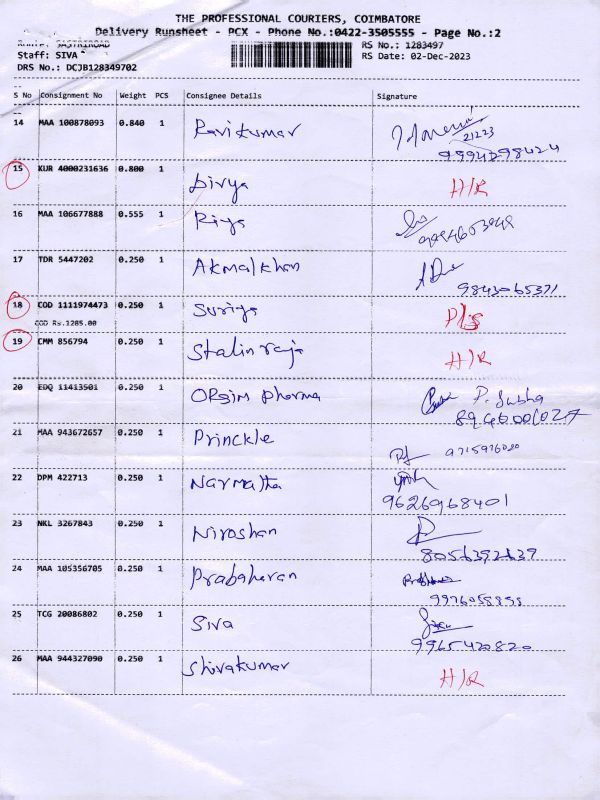 THE PROFESSIONAL COURIERS, COIMBATORE
Delivery Runsheet - PCX - Phone No.:0422-3505555 - Page No.:2
RS No.: 1283497
Staff: SIVA RS Date: 02-Dec-2023
DRS No.: DCJB128349702
S No Consignment No Weight PCS Consignee Details Signature
14 MAA 100878093 0.840 1 Ravikumar
21223
9994398424
15 KUR 4000231636 0.800 1 Divya H/R
16 MAA 106677888 0.555 1 Riya
17 TDR 5447202 0.250 1 Akmalkhan
9843065371
18 COD 1111974473 0.250 1 Suriya P/s
COD Rs.1285.00
19 CMM 856794 0.250 1 Stalin raja H/R
20 EDQ 11413501 0.250 1 Pharma P. Subha
21 MAA 943672657 0.250 1 Princkle
9715976020
22 DPM 422713 0.250 1 Narmatha
9626968401
23 NKL 3267843 0.250 1 Niroshan
8056392639
24 MAA 105356705 0.250 1 Prabaharan
25 TCG 20086802 0.250 1 Siva
9965420820
26 MAA 944327090 0.250 1 Shivakumar H/R